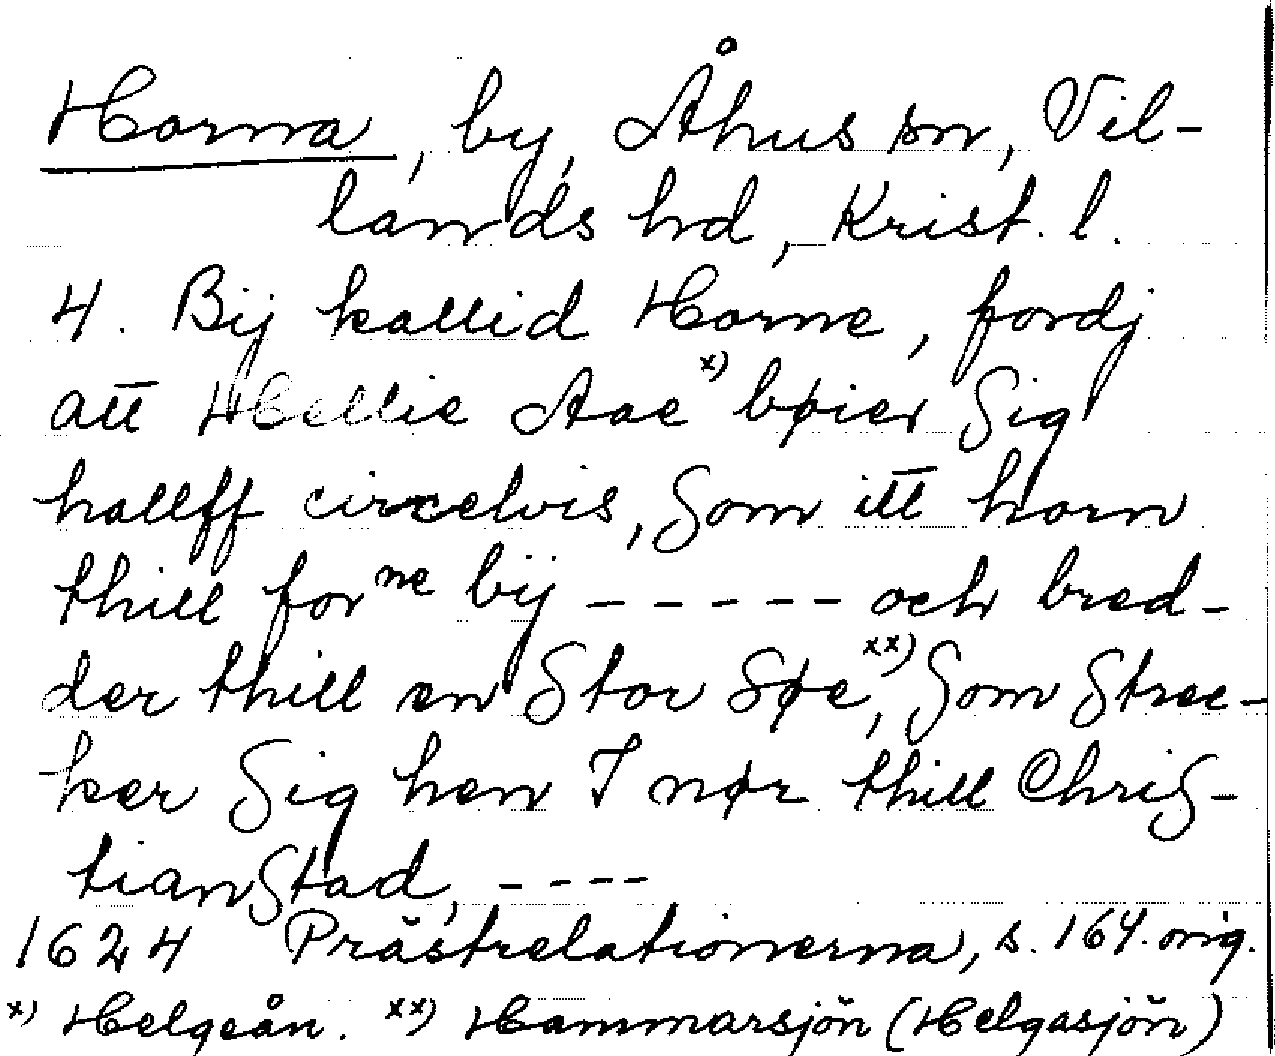 Horna, by, Åhus sn, Vil-
lands hd, Krist. l.
4. Bij kallid Horne, fordj
att Hellie Aae x) bøier sig
hallff circelvis, som itt horn
thill forne bij - - - - - och bred-
der thill en stor søe, xx) som stree-
ker sig hen I nør thill Chris-
tianstad, - - - -
1624 Prästrelationerna, s. 164. orig.
x) Helgeån. xx) Hammarsjön (Helgasjön)